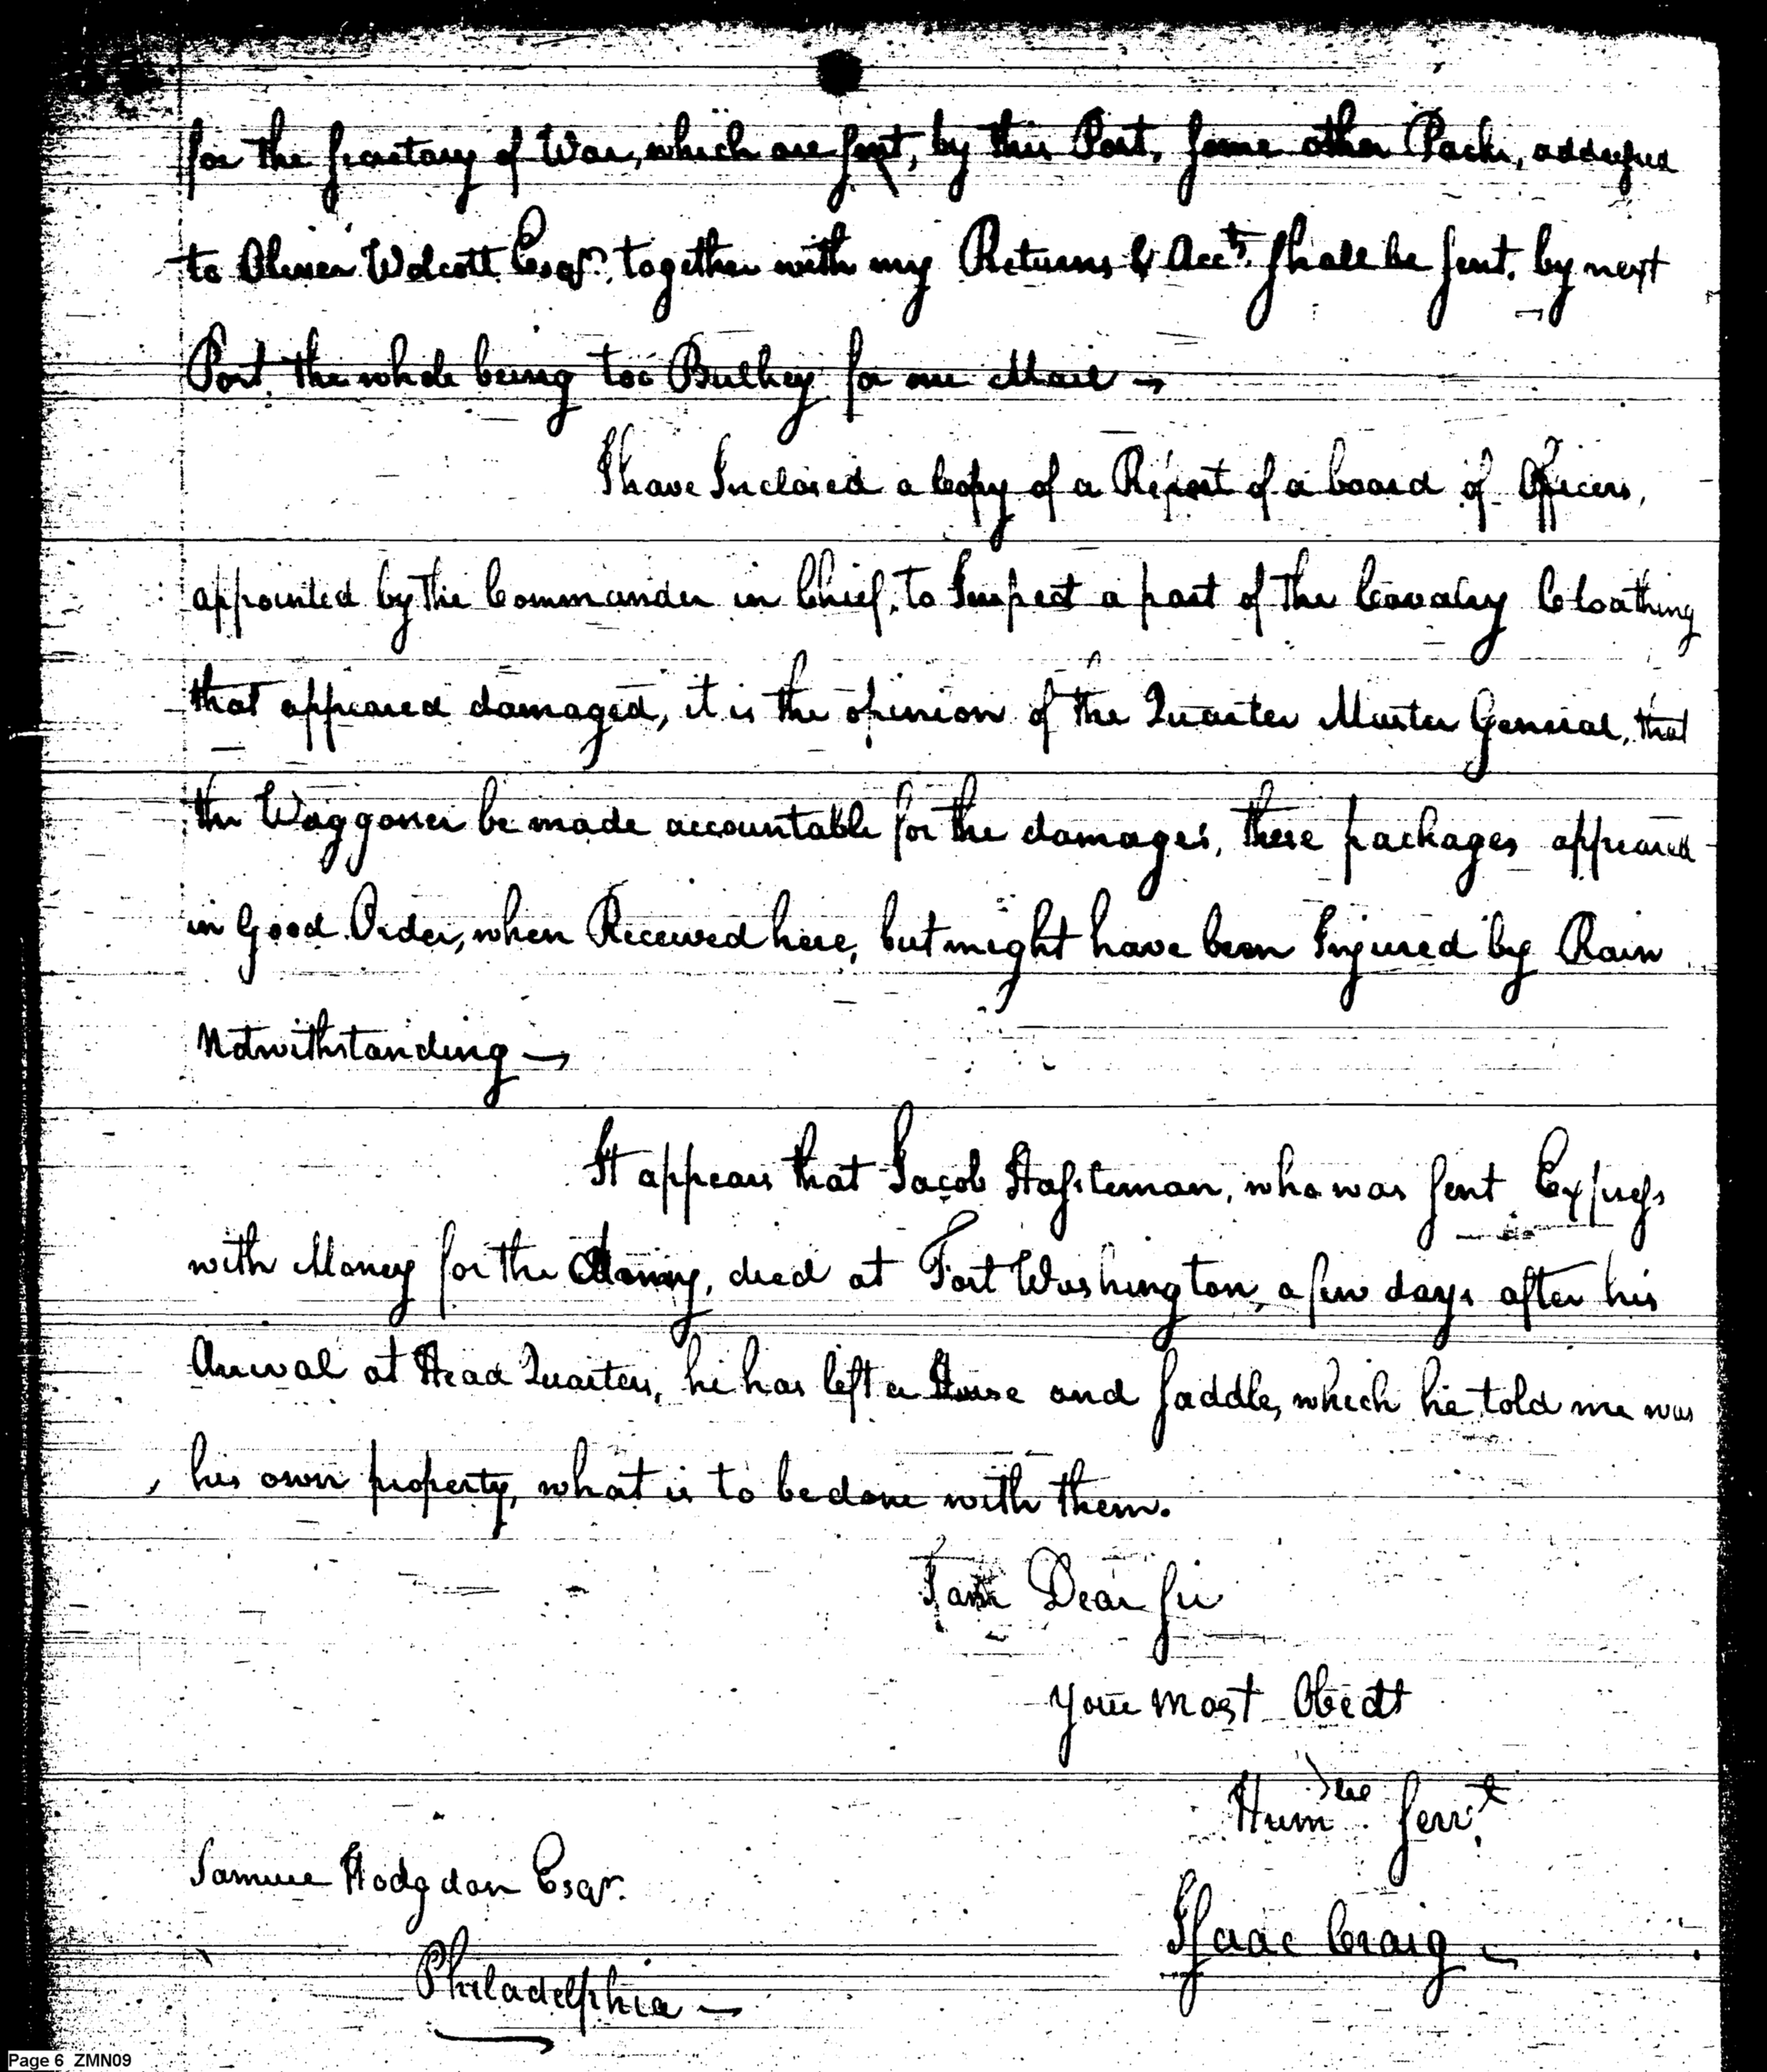 for the Secretary of War, which are sent, by this Post, some other Packs, addressed
to Oliver Wolcott Esqr. together with my Returns & Accts. shall be sent, by next
Post, the whole being too Bulkey for one Mail —
I have Inclosed a Copy of a Report of a board of Officers,
appointed by the Commander in Chief, to Inspect a part of the Cavalry Cloathing
that appeared damaged, it is the opinion of the Quarter Master General, that
the Waggoner be made accountable for the damages, these packages appeared
in Good Order, when Received here, but might have been Injured by Rain
Notwithstanding —
It appears that Jacob, who was sent Express
with Money for the Army, died at Fort Washington, a few days after his
Arrival at Head Quarters, he has left a Horse and Saddle, which he told me was
his own property, what is to be done with them.
I am Dear Sir
Your most Obedt
Humble Servt.
Samuel Hodgdon Esqr.
Isaac Craig —
Philadelphia —
Page 6 ZMN09